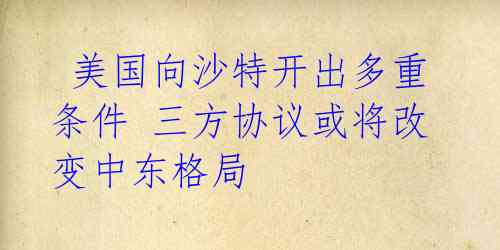 美国向沙特开出多重
条件 三方协议或将改
变中东格局